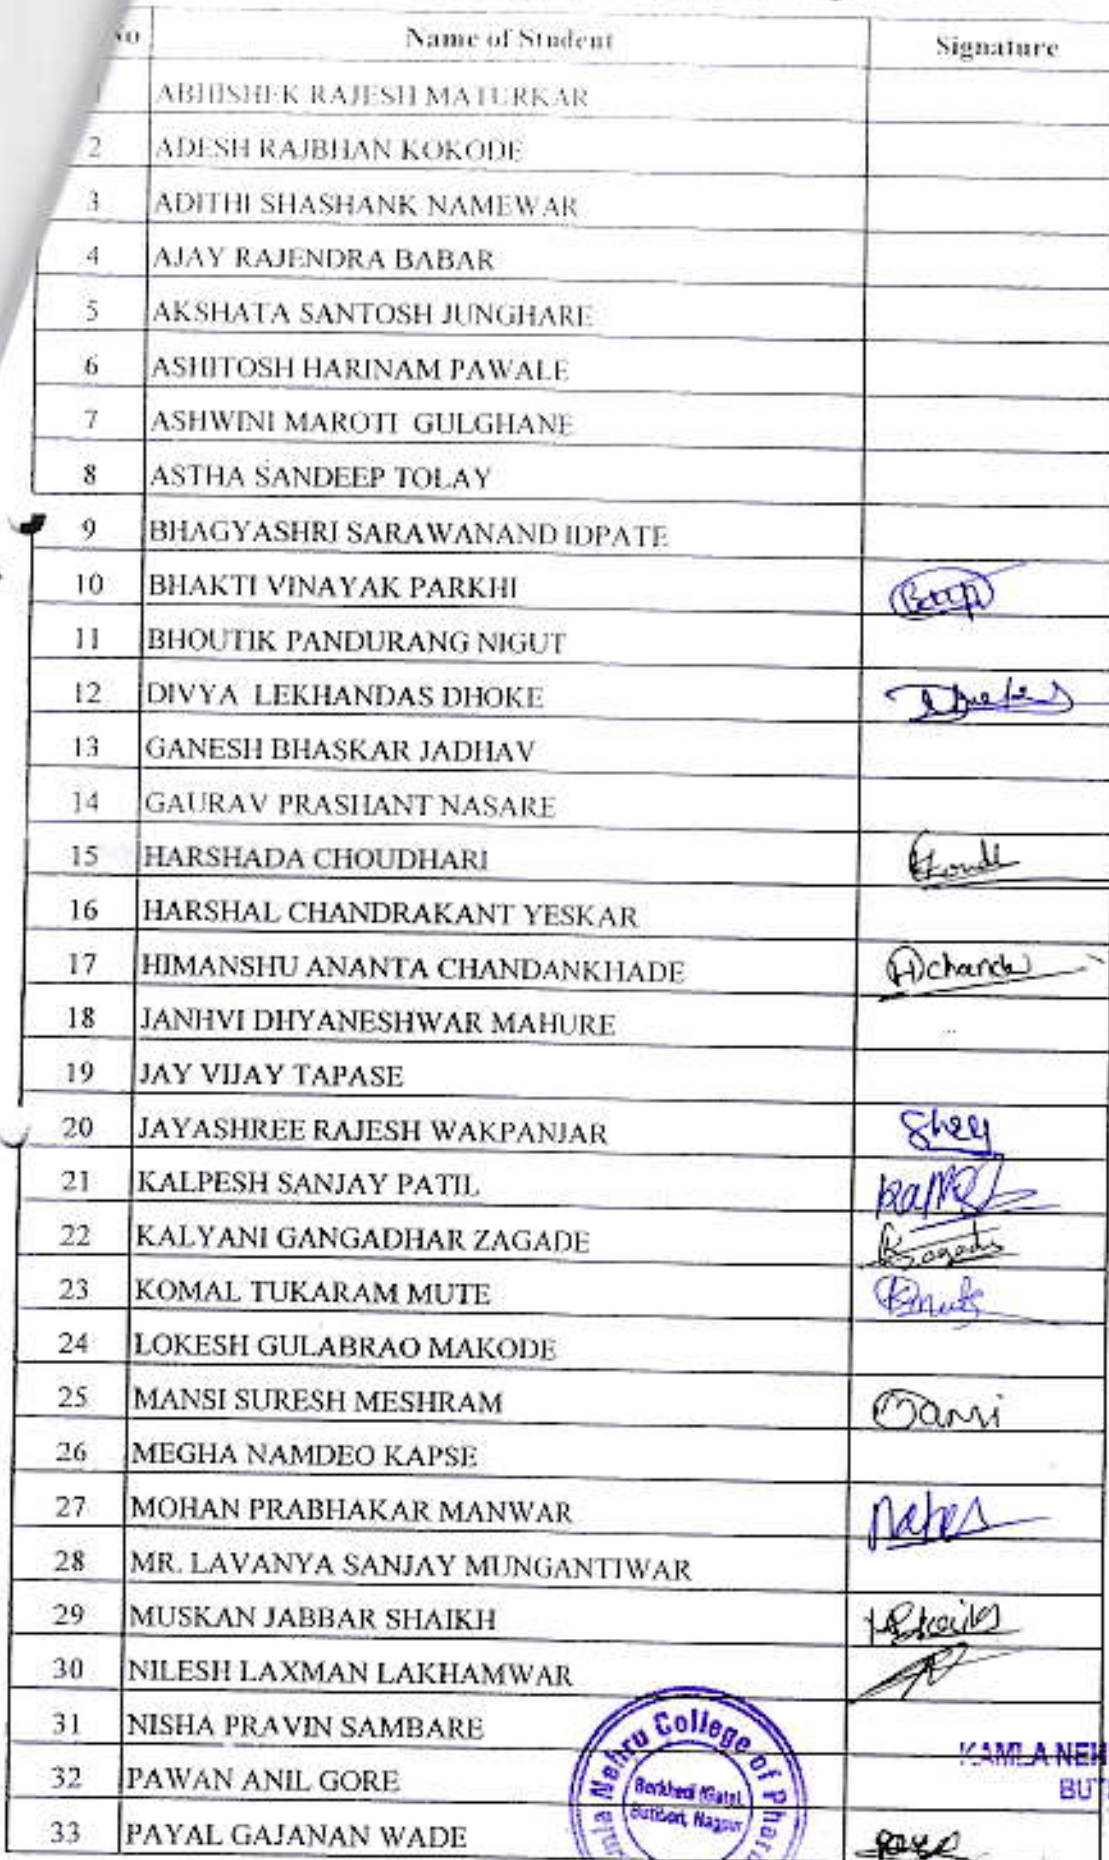 No Name of Student Signature
ABHISHEK RAJESH MATURKAR
2 ADESH RAJBHAN KOKODE
3 ADITHI SHASHANK NAMEWAR
4 AJAY RAJENDRA BABAR
5 AKSHATA SANTOSH JUNGHARE
6 ASHITOSH HARINAM PAWALE
7 ASHWINI MAROTI GULGHANE
8 ASTHA SANDEEP TOLAY
9 BHAGYASHRI SARAWANAND IDPATE
10 BHAKTI VINAYAK PARKHI
11 BHOUTIK PANDURANG NIGUT
12 DIVYA LEKHANDAS DHOKE
13 GANESH BHASKAR JADHAV
14 GAURAV PRASHANT NASARE
15 HARSHADA CHOUDHARI
16 HARSHAL CHANDRAKANT YESKAR
17 HIMANSHU ANANTA CHANDANKHADE
18 JANHVI DHYANESHWAR MAHURE
19 JAY VIJAY TAPASE
20 JAYASHREE RAJESH WAKPANJAR
21 KALPESH SANJAY PATIL
22 KALYANI GANGADHAR ZAGADE
23 KOMAL TUKARAM MUTE
24 LOKESH GULABRAO MAKODE
25 MANSI SURESH MESHRAM
26 MEGHA NAMDEO KAPSE
27 MOHAN PRABHAKAR MANWAR
28 MR. LAVANYA SANJAY MUNGANTIWAR
29 MUSKAN JABBAR SHAIKH
30 NILESH LAXMAN LAKHAMWAR
31 NISHA PRAVIN SAMBARE
32 PAWAN ANIL GORE
33 PAYAL GAJANAN WADE
Nehru College of
Butibori, Nagpur
KAMLA NEH
BUT